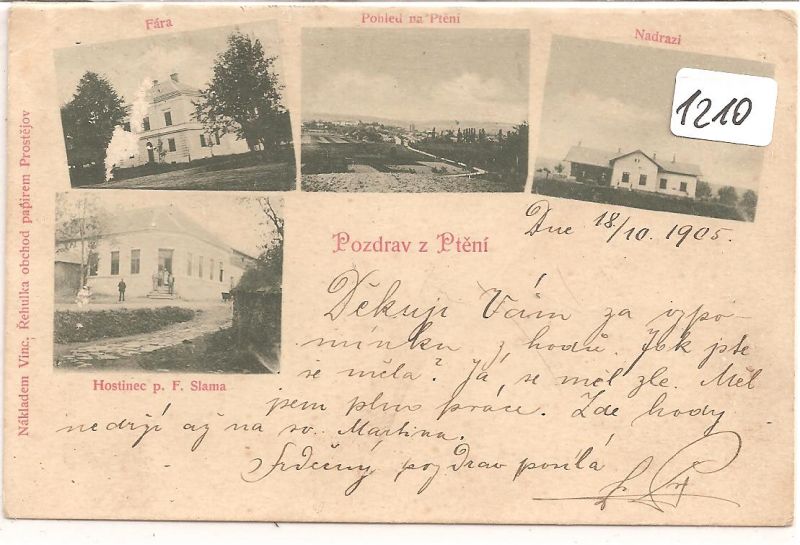 Fára
Pohled na Ptění
Nadrazi
1210
Nákladem Vinc. Řehulka obchod papírem Prostějov
Hostinec p. F. Slama
Pozdrav z Ptění
Dne 18/10. 1905.
Děkuji Vám za vzpo-
mínku z hodů. Jak jste
se měla? Já se měl zle. Měl
jsem plno práce. Zde hody
nedrží až na sv. Martina.
Srdečný pozdrav posílá